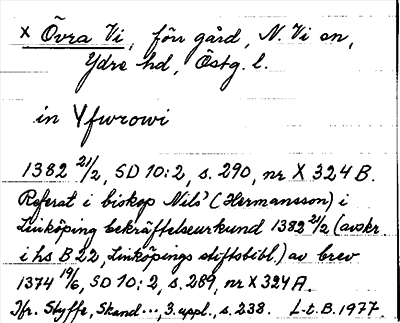 x Övra Vi, förr gård, N. Vi sn,
Ydre hd, Östg. l.
in Yfwrowi
1382 21/2, SD 10:2, s. 290, nr X 324 B.
Referat i biskop Nils' (Hermansson) i
Linköping bekräftelseurkund 1382 21/2 (avskr
i hs B 22, Linköpings stiftsbibl.) av brev
1374 19/6, SD 10:2, s. 289, nr X 324 A.
Jfr. Styffe, Skand..., 3. uppl., s. 238. L-t. B. 1977.